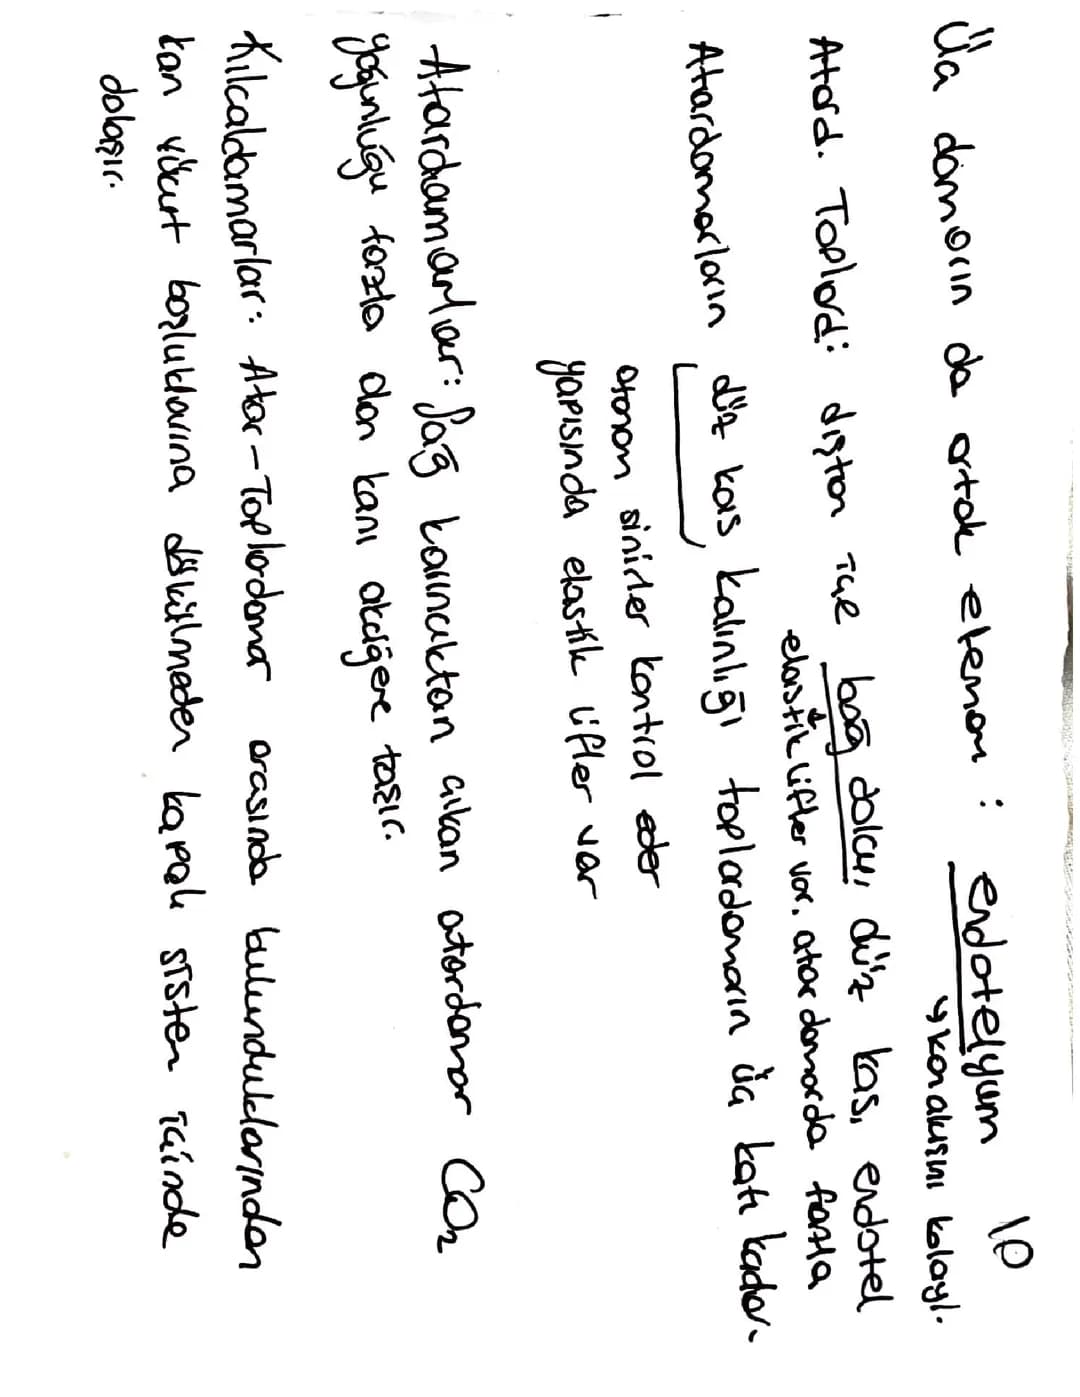 10
Üç damarın da ortak elemanı : endotelyum
↳ kan akışını kolayl.
Atard. Toplard: dıştan içe bağ doku, düz kas, endotel
↓ elastik lifler var. atar damarda fazla
Atardamarların düz kas kalınlığı toplardamarın üç katı kadar.
otonom sinirler kontrol eder
yapısında elastik lifler var
Atardamarlar: Sağ karıncıktan çıkan atardamar CO₂
yoğunluğu fazla olan kanı akciğere taşır.
Kılcaldamarlar: Atar-Toplardamar arasında bulunduklarından
kan vücut boşluklarına dökülmeden kapalı sistem içinde
dolaşır.